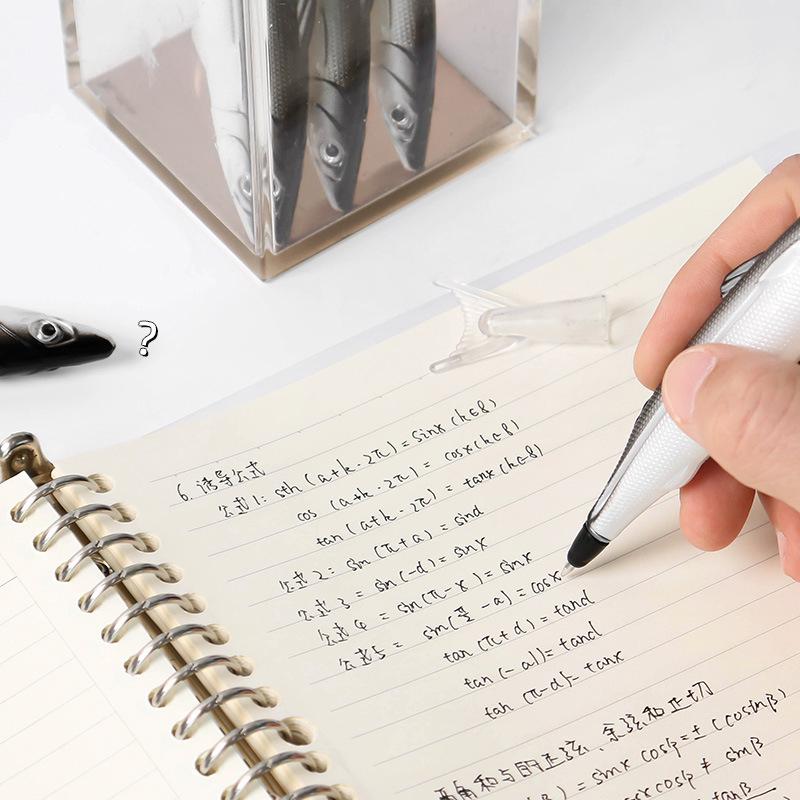 ?
6. 诱导公式
公式1: sth (a+k·2π) = sinx (k∈8)
cos (a+k·2π) = cosx (k∈8)
tan (a+k·2π) = tanx (k∈8)
公式2: sin (π+a) = sind
公式3 = sin (-d) = sinx
公式4 = sin (π-x) = sinx
公式5 = sin (π/2 - a) = cosx
tan (π+d) = tand
tan (-a)) = tand
tan (π-d)= tanx
两角和与的正弦、余弦和正切
β) = sinx cosβ = ± (cosinβ)
cosx cosβ ≠ sinβ
tanβ